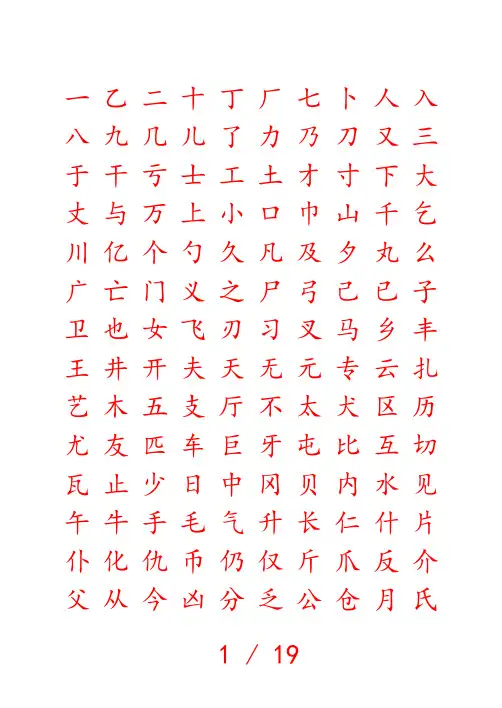 一 乙 二 十 丁 厂 七 卜 人 入
八 九 几 儿 了 力 乃 刀 又 三
于 干 亏 士 工 土 才 寸 下 大
丈 与 万 上 小 口 巾 山 千 乞
川 亿 个 勺 久 凡 及 夕 丸 么
广 亡 门 义 之 尸 弓 己 已 子
卫 也 女 飞 刃 习 叉 马 乡 丰
王 井 开 夫 天 无 元 专 云 扎
艺 木 五 支 厅 不 太 犬 区 历
尤 友 匹 车 巨 牙 屯 比 互 切
瓦 止 少 日 中 冈 贝 内 水 见
午 牛 手 毛 气 升 长 仁 什 片
仆 化 仇 币 仍 仅 斤 爪 反 介
父 从 今 凶 分 乏 公 仓 月 氏
1 / 19